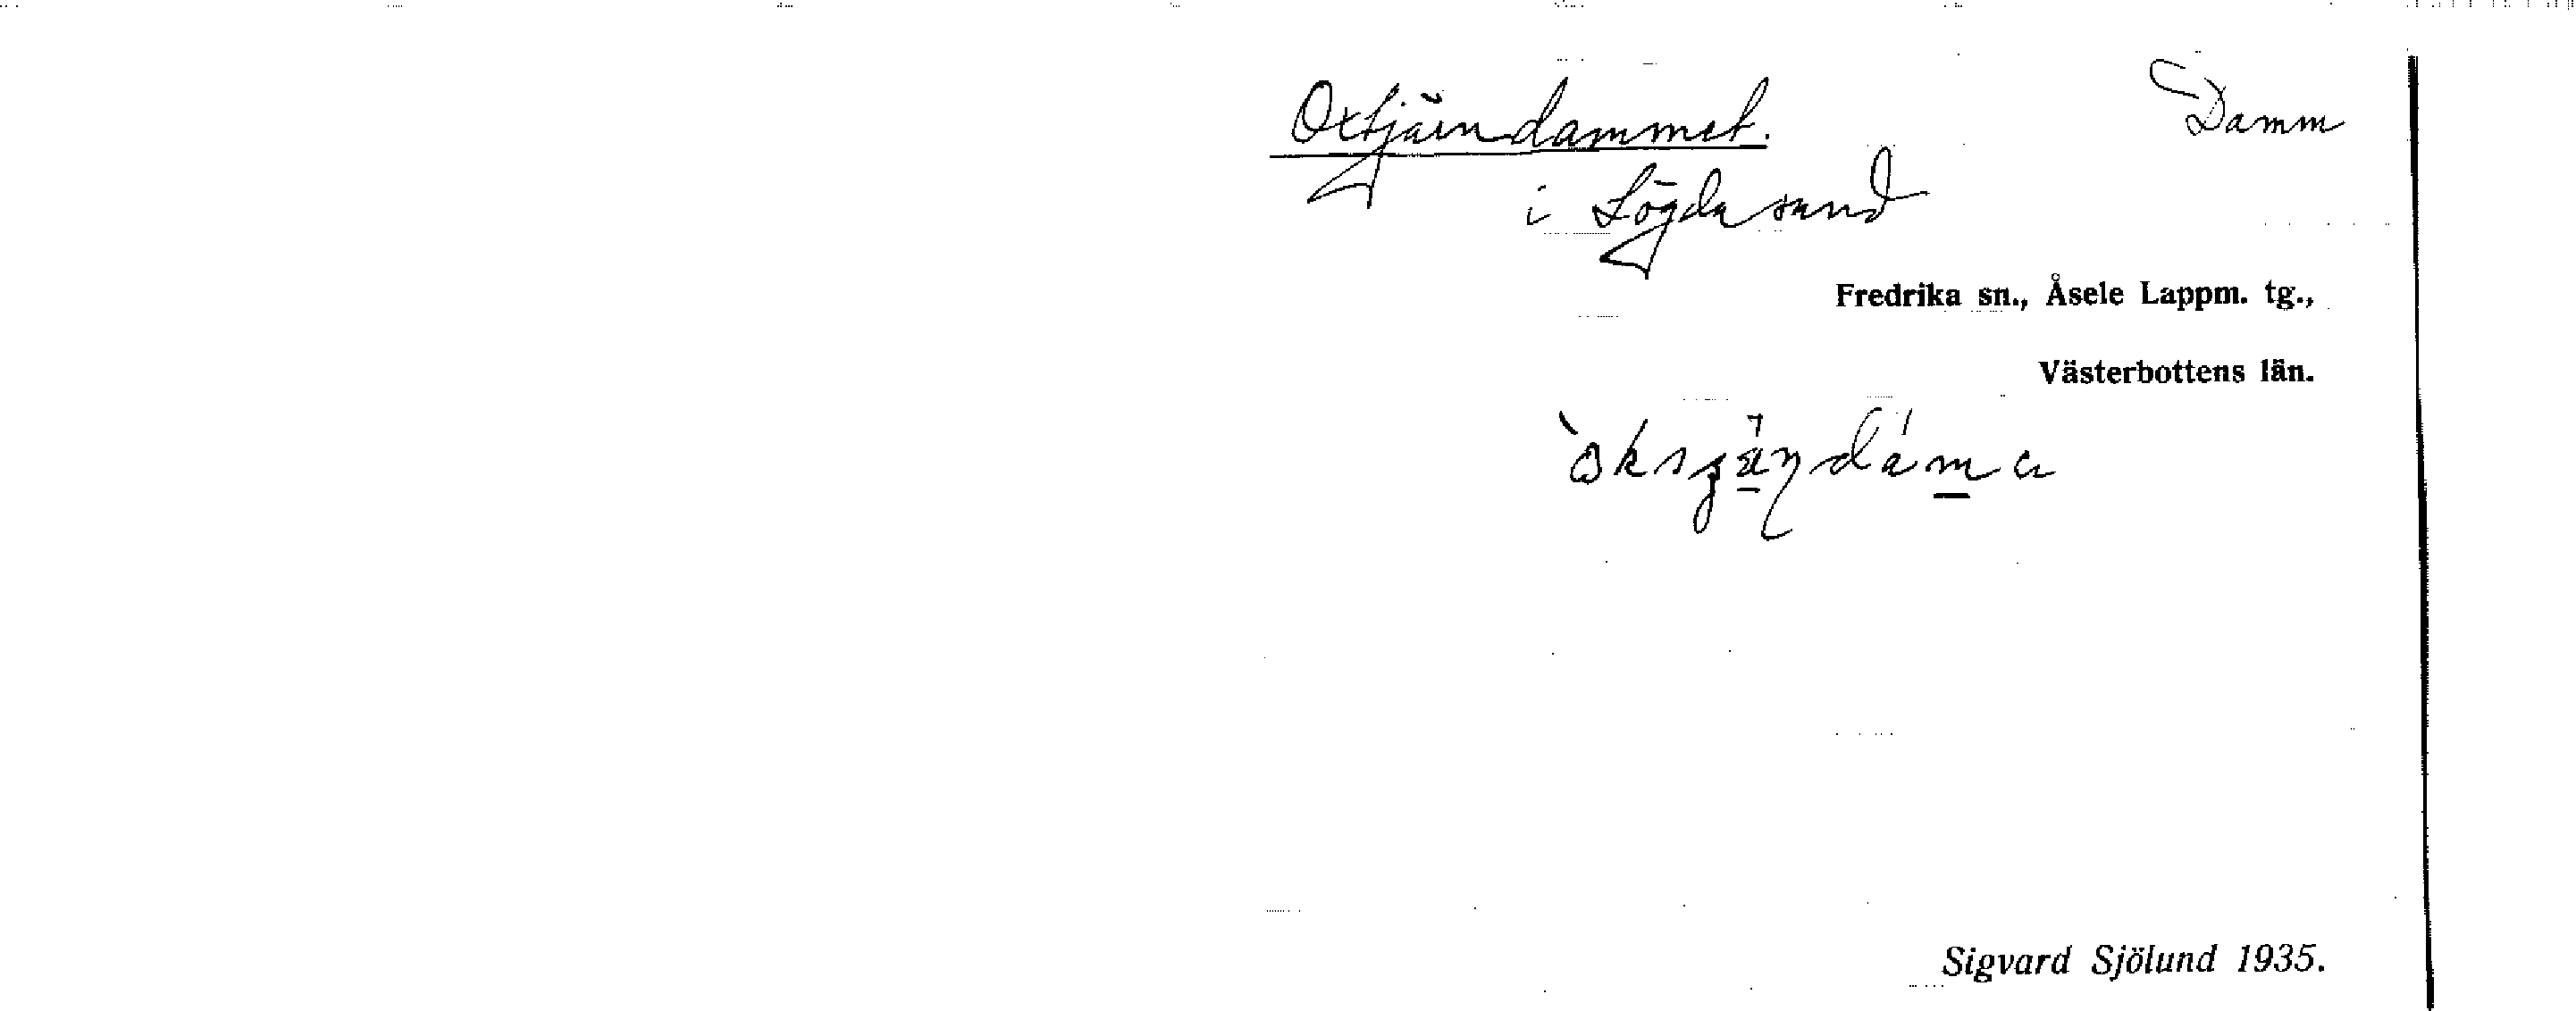 Oxtjärndammet. Damm
i Lögdasund
Fredrika sn., Åsele Lappm. tg.,
Västerbottens län.
Sigvard Sjölund 1935.